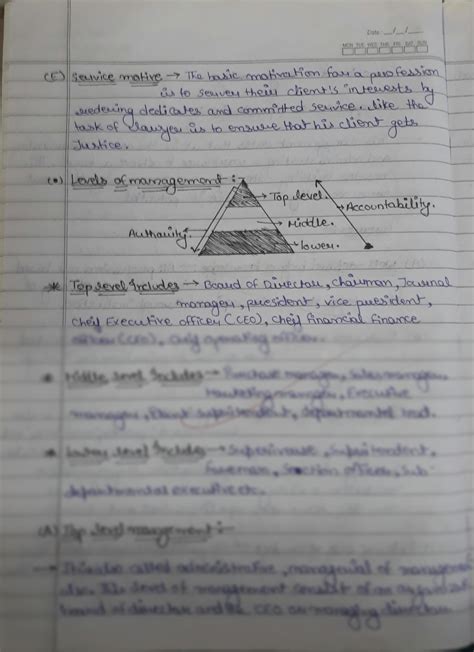 Date: __/__/__
MON TUE WED THU FRI SAT SUN
(E) Service motive → The basic motivation for a profession
is to server their client's interests by
redering dedicates and committed service. like the
task of lawyer is to ensure that his client gets
Justice.
(•) Levels of management :-
Top level.
Accountability.
Middle.
Authority.
lower.
* Top level Includes → Board of Director, Chairman, Journal
manager, president, vice president,
Cheif Executive officer (CEO), Cheif financial finance
officer (CFO), Cheif operating officer.
Middle level Includes → Purchase manager, Sales manager,
Marketing manager, Executive
manager, Plant Supritendent, departmental head.
Lower level Includes → Supervisor, Supritendent,
foreman, Section officer, Sub-
departmental executive etc.
(A) Top level management :-
→ This also called administrative, managerial of
also. This level of management consist of an
board of director and the CEO or managing director